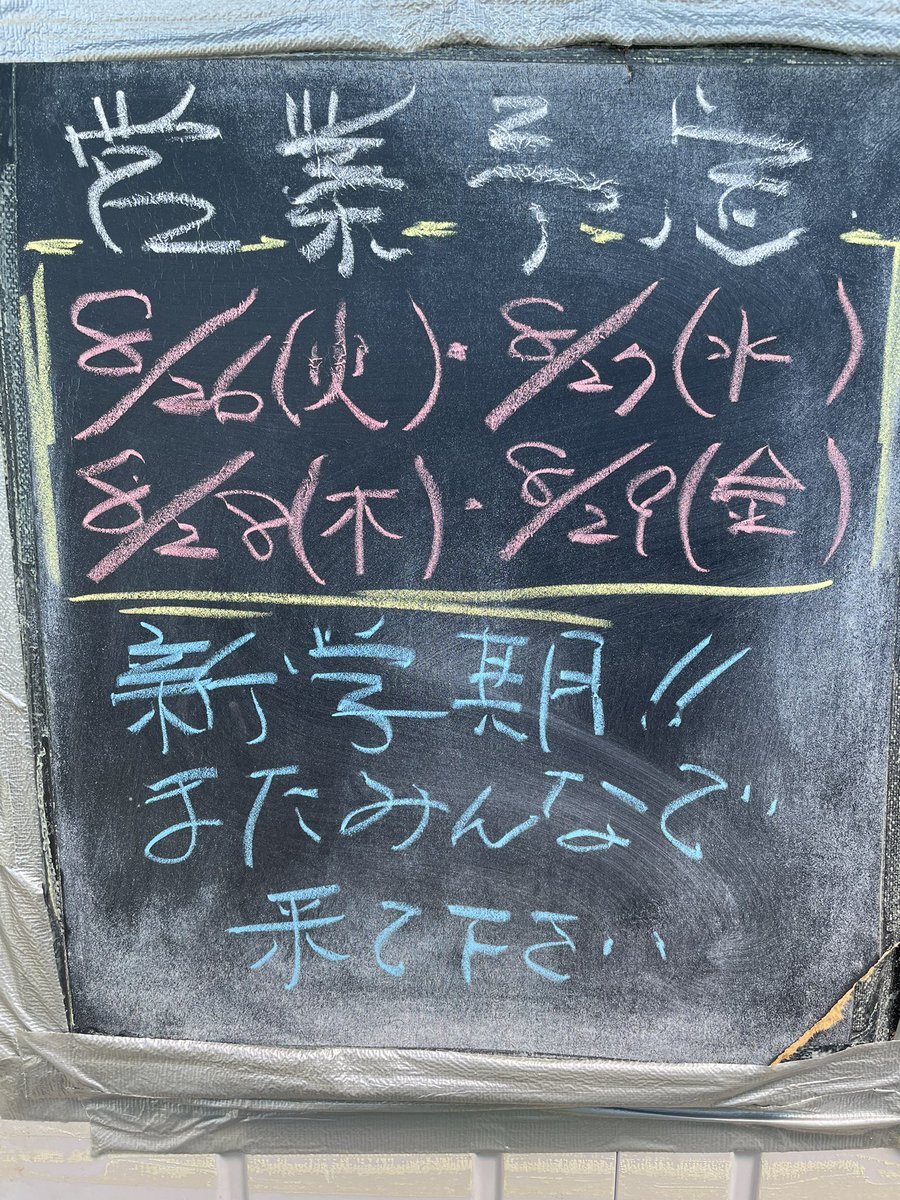 営業予定
8/26(火)・8/27(水)
8/28(木)・8/29(金)
新学期!!
またみんなで
来て下さい